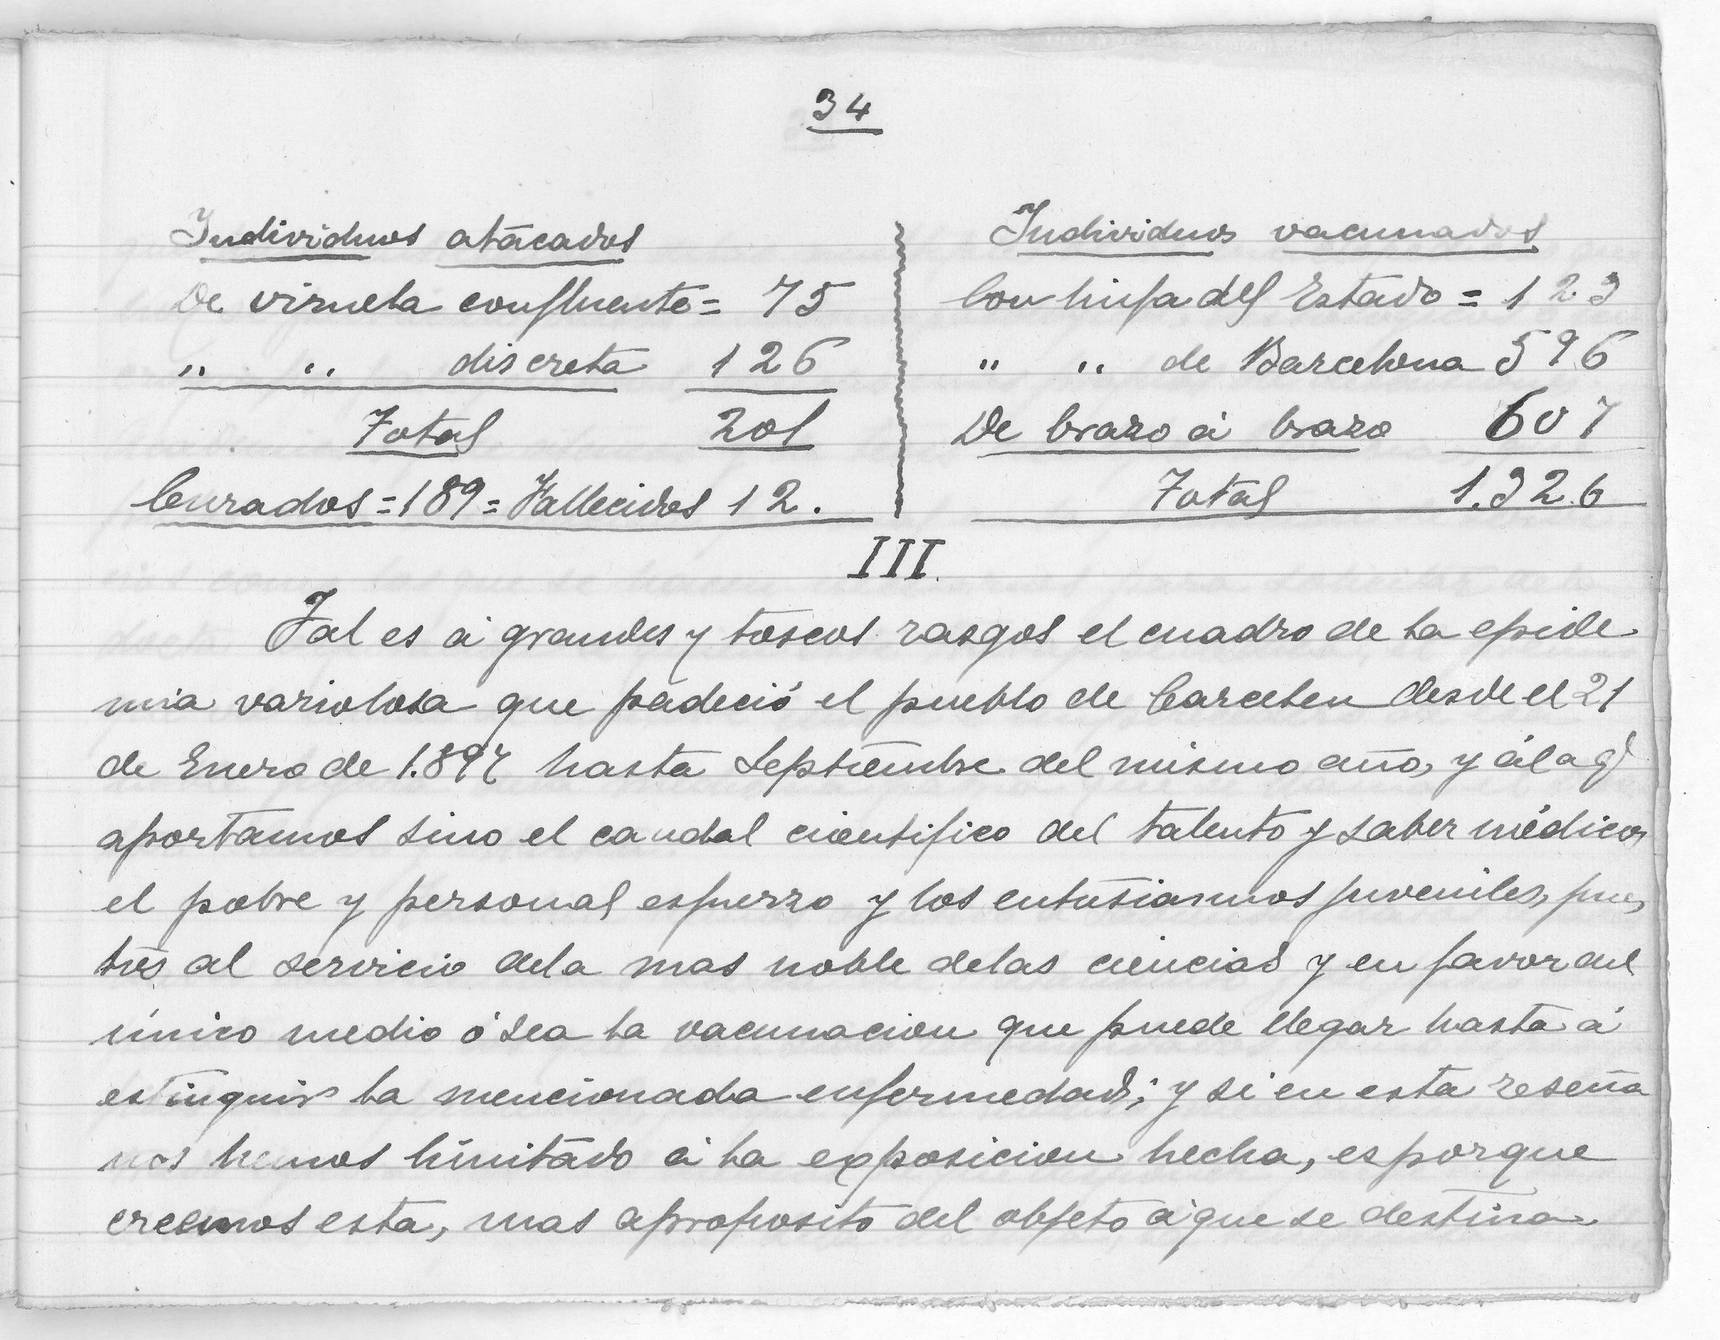 34
Individuos atacados
De viruela confluente = 75
" " discreta 126
Total 201
Curados = 189 = Fallecidos 12.
Individuos vacunados
Con linfa del Estado = 123
" " de Barcelona 596
De brazo á brazo 607
Total 1.326
III
Tal es á grandes y toscos rasgos el cuadro de la epide
mia variolosa que padeció el pueblo de Carcelen desde el 21
de Enero de 1.897 hasta Septiembre del mismo año, y á la q
aportamos sino el caudal cientifico del talento y saber médicos
el pobre y personal esfuerzo y los entusiasmos juveniles, pues
tos al servicio dela mas noble delas ciencias y en favor del
único medio ó sea la vacunacion que puede llegar hasta á
estinguir la mencionada enfermedad; y si en esta reseña
nos hemos limitado á la exposicion hecha, es porque
creemos esta, mas aproposito del objeto á que se destina.